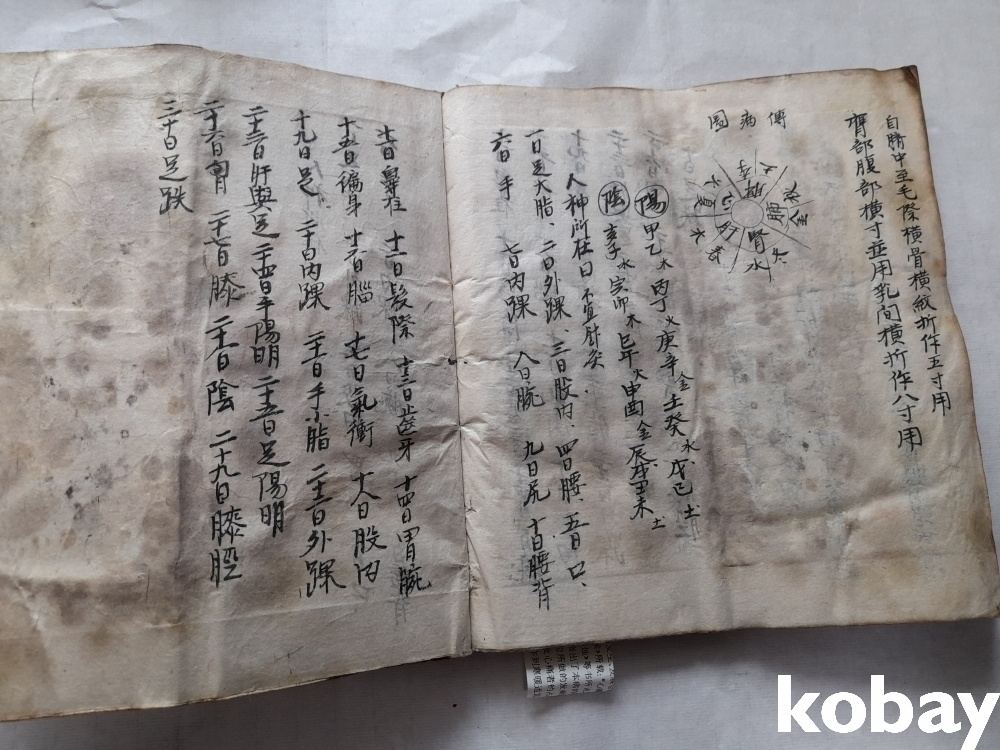 自臍中至毛際橫骨橫紋折作五寸用
膺部腹部橫寸並用乳間橫折作八寸用
傳病圖
肺 金 秋
腎 水
肝
心 夏 火
陽 甲乙木 丙丁火 庚辛金 壬癸水 戊己土
陰 亥子水 寅卯木 巳午火 申酉金 辰戌丑未土
人神所在日 不宜針灸
一日足大脂、二日外踝、三日股內、四日腰 五日口、
六日手 七日內踝 八日腕 九日尻 十日腰背
十一日鼻柱 十二日髮際 十三日齒牙 十四日胃腕
十五日徧身 十六日腦 十七日氣衝 十八日股內
十九日足 二十日內踝 二十一日手小脂 二十二日外踝
二十三日肝與足 二十四日手陽明 二十五日足陽明
二十六日胷 二十七日膝 二十八日陰 二十九日膝脛
三十日足趺
kobay